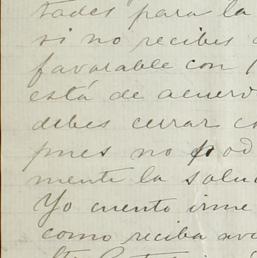 tades para la
si no recibes
favorable con
está de acuerd
debes cerrar co
pues no pod
mente la salu
Yo cuento irme
como reciba